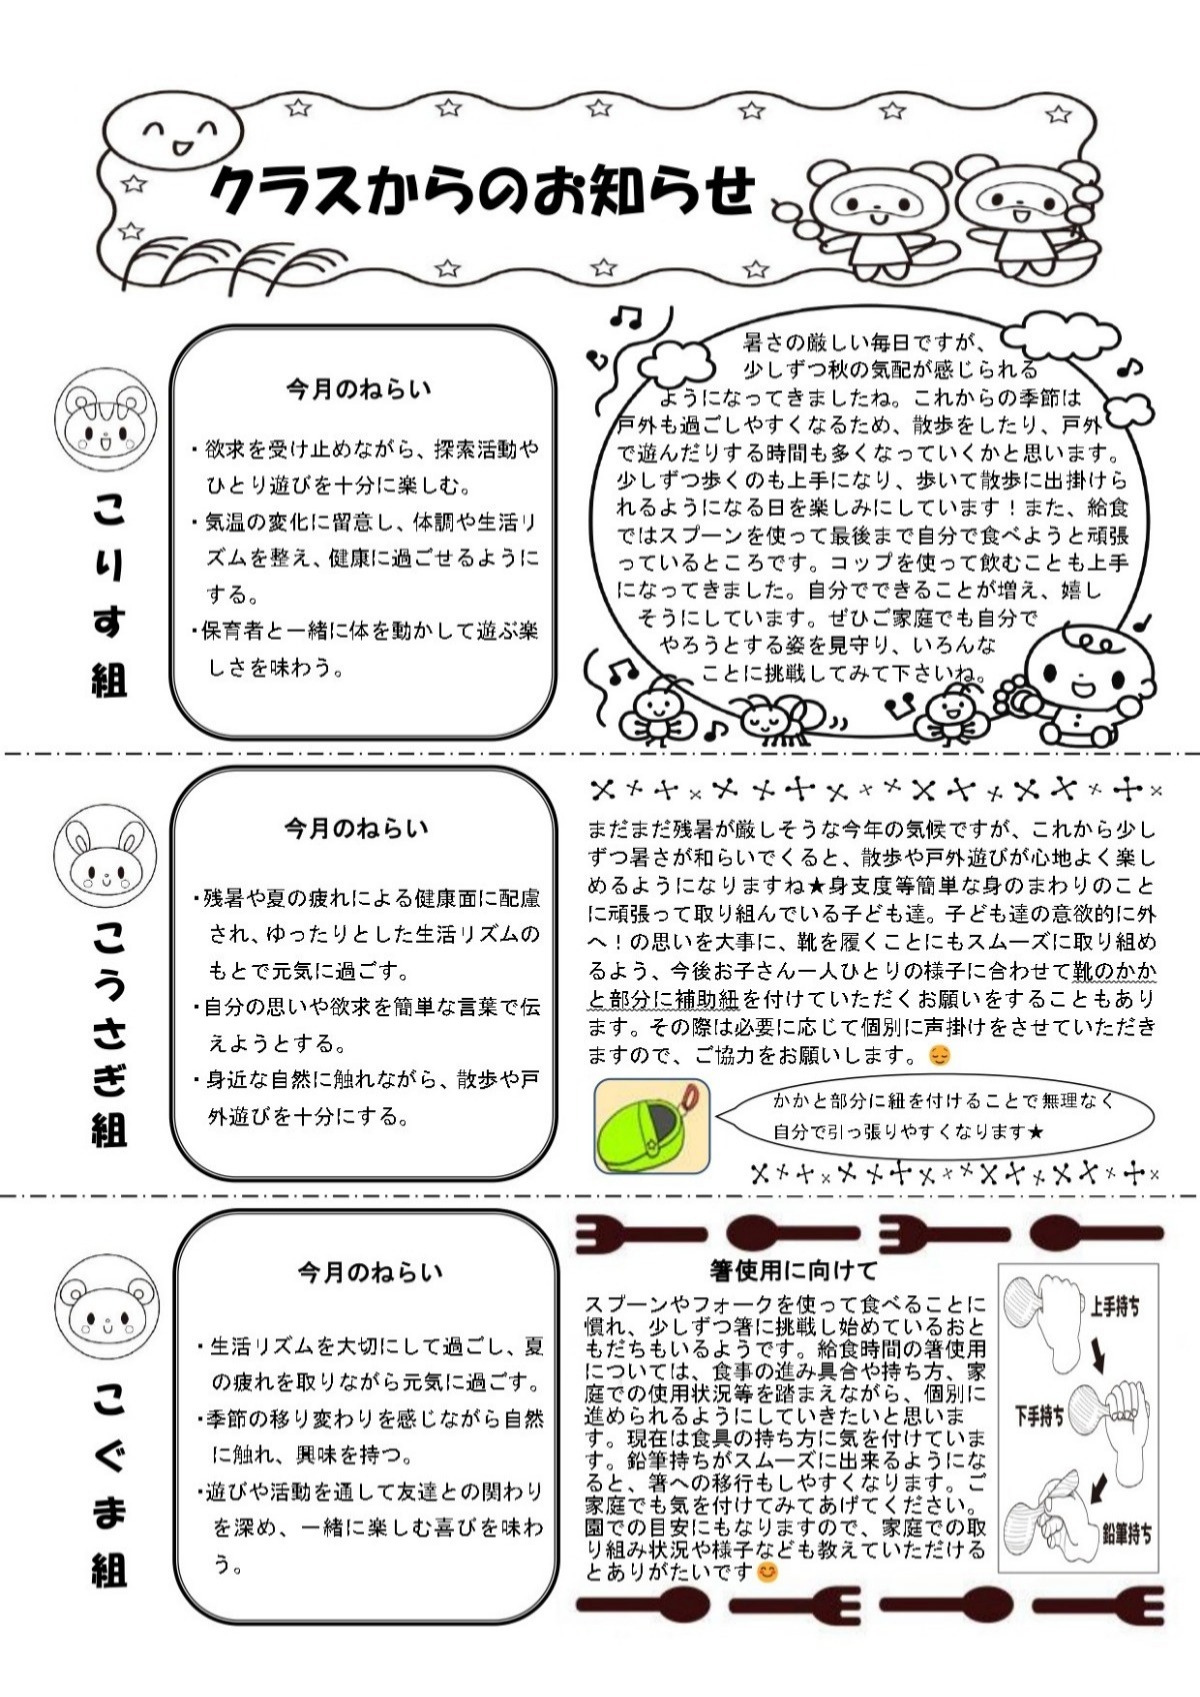 クラスからのお知らせ
こりす組
今月のねらい
・欲求を受け止めながら、探索活動や
ひとり遊びを十分に楽しむ。
・気温の変化に留意し、体調や生活リ
ズムを整え、健康に過ごせるように
する。
・保育者と一緒に体を動かして遊ぶ楽
しさを味わう。
暑さの厳しい毎日ですが、
少しずつ秋の気配が感じられる
ようになってきましたね。これからの季節は
戸外も過ごしやすくなるため、散歩をしたり、戸外
で遊んだりする時間も多くなっていくかと思います。
少しずつ歩くのも上手になり、歩いて散歩に出掛けら
れるようになる日を楽しみにしています！また、給食
ではスプーンを使って最後まで自分で食べようと頑張
っているところです。コップを使って飲むことも上手
になってきました。自分でできることが増え、嬉し
そうにしています。ぜひご家庭でも自分で
やろうとする姿を見守り、いろんな
ことに挑戦してみて下さいね。
こうさぎ組
今月のねらい
・残暑や夏の疲れによる健康面に配慮
され、ゆったりとした生活リズムの
もとで元気に過ごす。
・自分の思いや欲求を簡単な言葉で伝
えようとする。
・身近な自然に触れながら、散歩や戸
外遊びを十分にする。
まだまだ残暑が厳しそうな今年の気候ですが、これから少し
ずつ暑さが和らいでくると、散歩や戸外遊びが心地よく楽し
めるようになりますね★身支度等簡単な身のまわりのこと
に頑張って取り組んでいる子ども達。子ども達の意欲的に外
へ！の思いを大事に、靴を履くことにもスムーズに取り組め
るよう、今後お子さん一人ひとりの様子に合わせて靴のかか
と部分に補助紐を付けていただくお願いをすることもあり
ます。その際は必要に応じて個別に声掛けをさせていただき
ますので、ご協力をお願いします。😌
かかと部分に紐を付けることで無理なく
自分で引っ張りやすくなります★
こぐま組
今月のねらい
・生活リズムを大切にして過ごし、夏
の疲れを取りながら元気に過ごす。
・季節の移り変わりを感じながら自然
に触れ、興味を持つ。
・遊びや活動を通して友達との関わり
を深め、一緒に楽しむ喜びを味わ
う。
箸使用に向けて
スプーンやフォークを使って食べることに
慣れ、少しずつ箸に挑戦し始めているおと
もだちもいるようです。給食時間の箸使用
については、食事の進み具合や持ち方、家
庭での使用状況等を踏まえながら、個別に
進められるようにしていきたいと思いま
す。現在は食具の持ち方に気を付けていま
す。鉛筆持ちがスムーズに出来るようにな
ると、箸への移行もしやすくなります。ご
家庭でも気を付けてみてあげてください。
園での目安にもなりますので、家庭での取
り組み状況や様子なども教えていただける
とありがたいです😊
上手持ち
下手持ち
鉛筆持ち